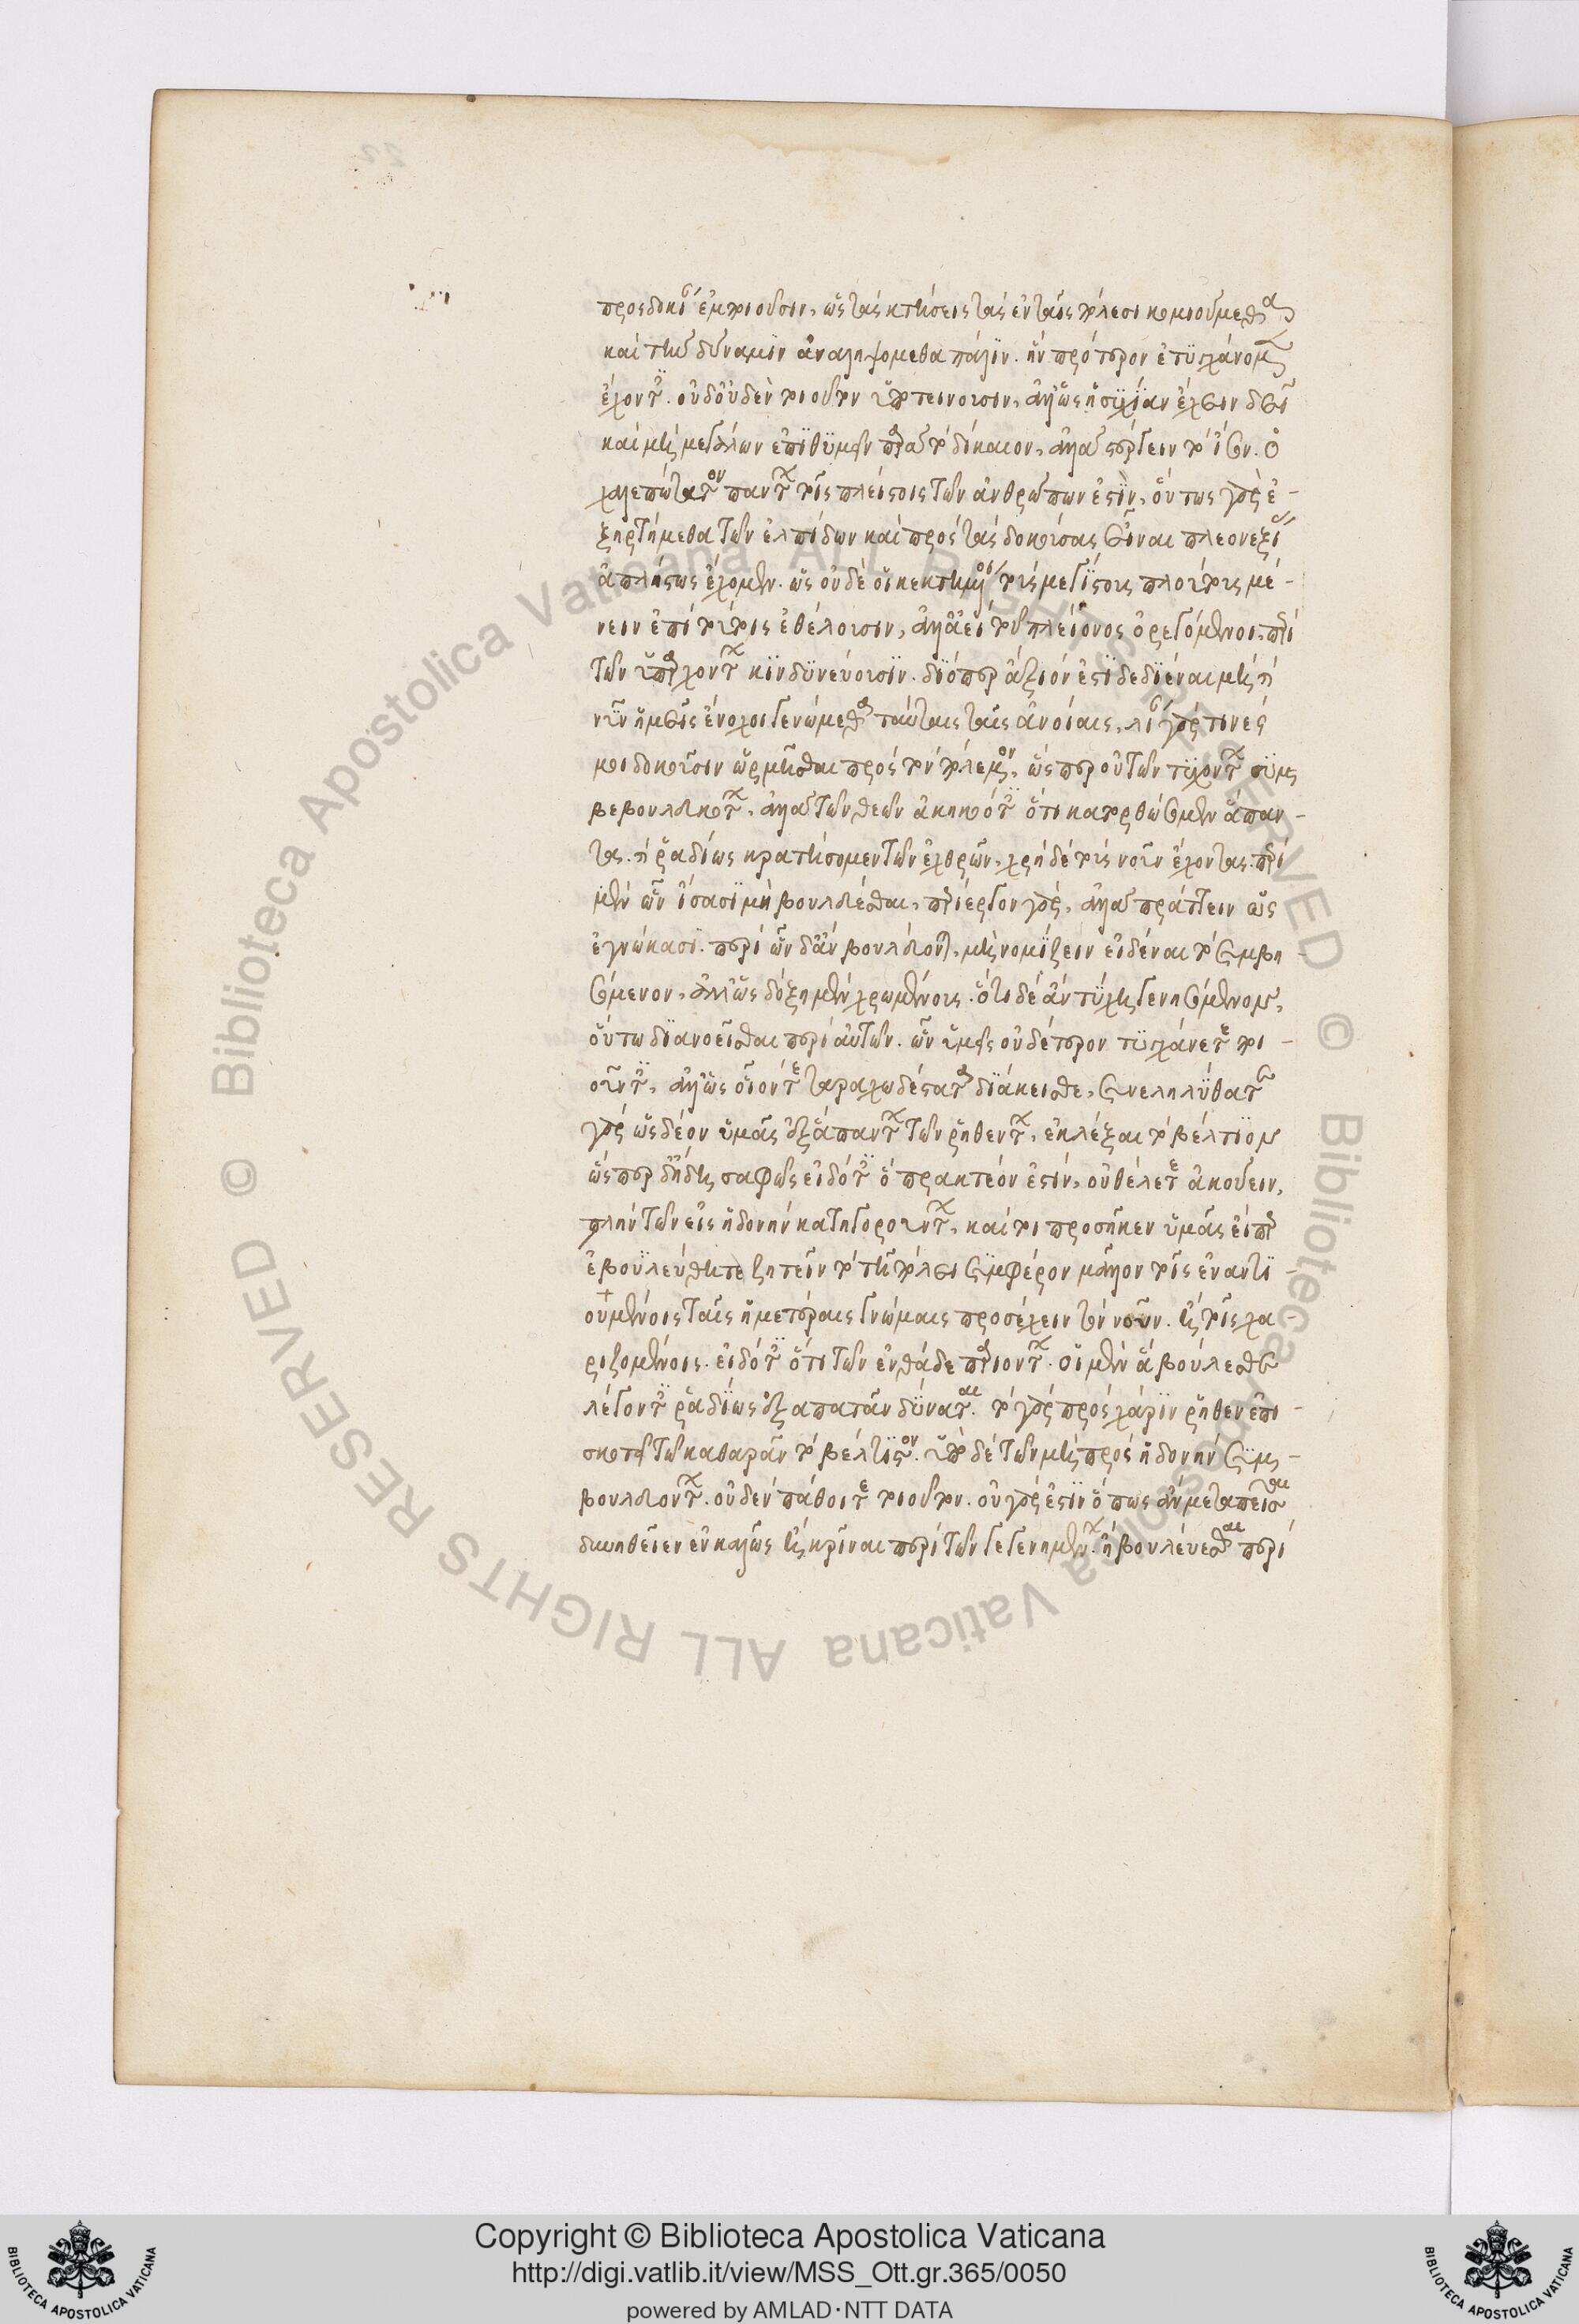 προσδοκίαν ἐμποιοῦσιν, ὡς τὰς κτήσεις τὰς ἐν ταῖς πόλεσι κομιούμεθα
καὶ τὴν δύναμιν ἀναληψόμεθα πάλιν. ἣν πρότερον ἐτυγχάνομεν
ἔχοντες. οἱ δ' οὐδὲν τοιοῦτον ὑποτείνουσιν, ἀλλ' ὡς ἡσυχίαν ἔχειν δεῖ
καὶ μὴ μεγάλων ἐπιθυμεῖν παρὰ τὸ δίκαιον, ἀλλὰ στέργειν τὸ ἴσον. ὃ
χαλεπώτατον πάντων τοῖς πλείστοις τῶν ἀνθρώπων ἐστίν, οὕτως γὰρ ἐ-
ξηρτήμεθα τῶν ἐλπίδων καὶ πρὸς τὰς δοκούσας εἶναι πλεονεξίας
ἀπλήστως ἔχομεν. ὡς οὐδὲ οἱ κεκτημένοι τοὺς μεγίστους πλούτους μέ-
νειν ἐπὶ τούτοις ἐθέλουσιν, ἀλλ' ἀεὶ τοῦ πλείονος ὀρεγόμενοι, περὶ
τῶν ὑπαρχόντων κινδυνεύουσιν. διόπερ ἄξιόν ἐστι δεδιέναι μὴ καὶ
νῦν ἡμεῖς ἔνοχοι γενώμεθα ταύταις ταῖς ἀνοίαις, λίαν γάρ τινές
μοι δοκοῦσιν ὡρμῆσθαι πρὸς τὸν πόλεμον, ὥσπερ οὐ τῶν τυχόντων συμ
βεβουλευκότων, ἀλλὰ τῶν θεῶν ἀκηκοότες ὅτι κατορθώσομεν ἅπαν-
τα. καὶ ῥᾳδίως κρατήσομεν τῶν ἐχθρῶν, χρὴ δὲ τοὺς νοῦν ἔχοντας περὶ
μὲν ὧν ἴσασι μὴ βουλεύεσθαι, περίεργον γάρ, ἀλλὰ πράττειν ὡς
ἐγνώκασι. περὶ ὧν δ' ἂν βουλεύωνται, μὴ νομίζειν εἰδέναι τὸ συμβη
σόμενον, ἀλλ' ὡς δόξῃ μὲν χρωμένους. ὅ τι δὲ ἂν τύχῃ γενησόμενον,
οὕτω διανοεῖσθαι περὶ αὐτῶν. ὧν ὑμεῖς οὐδέτερον τυγχάνετε ποι-
οῦντες, ἀλλ' ὡς οἷόν τε ταραχωδέστατα διάκεισθε, συνεληλύθατε
γὰρ ὡς δέον ὑμᾶς ἐξ ἁπάντων τῶν ῥηθέντων, ἐκλέξαι τὸ βέλτιον
ὥσπερ δ' ἤδη σαφῶς εἰδότες ὃ πρακτέον ἐστίν, οὐ θέλετε ἀκούειν,
πλὴν τῶν εἰς ἡδονὴν κατηγορούντων, καίτοι προσῆκεν ὑμᾶς εἴπερ
ἐβουλεύθητε ζητεῖν τὸ τῇ πόλει συμφέρον μᾶλλον τοῖς ἐναντι-
ουμένοις ταῖς ἡμετέραις γνώμαις προσέχειν τὸν νοῦν. ἢ τοῖς χα-
ριζομένοις. εἰδότες ὅτι τῶν ἐνθάδε παριόντων. οἱ μὲν ἃ βούλεσθε
λέγοντες ῥᾳδίως ἐξαπατᾶν δύνανται. τὸ γὰρ πρὸς χάριν ῥηθὲν ἐπι-
σκοτεῖ τῷ καθαρᾶν τὸ βέλτιστον. ὑπὸ δὲ τῶν μὴ πρὸς ἡδονὴν συμ-
βουλευόντων. οὐδὲν πάθοιτε τοιοῦτον. οὐ γὰρ ἔστιν ὅπως ἂν μεταπεῖσαι
δυνηθεῖεν ἐν καλῶς ἢ κρῖναι περὶ τῶν γεγενημένων. ἢ βουλεύεσθαι περὶ
Copyright © Biblioteca Apostolica Vaticana
http://digi.vatlib.it/view/MSS_Ott.gr.365/0050
powered by AMLAD·NTT DATA